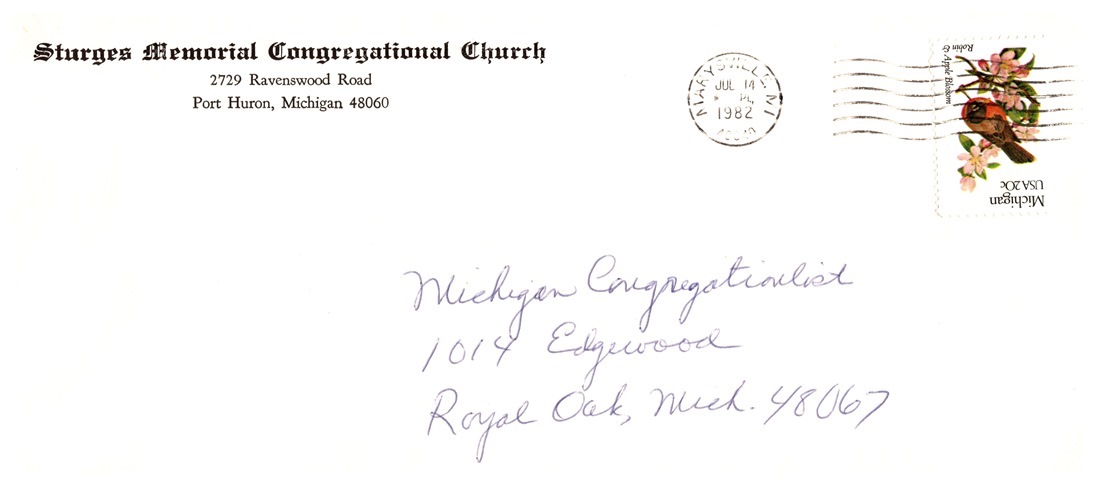 Sturges Memorial Congregational Church
2729 Ravenswood Road
Port Huron, Michigan 48060
MARYSVILLE, MI
JUL 14
1982
Robin & Apple Blossom
USA 20c
Michigan
Michigan Congregationlist
1014 Edgewood
Royal Oak, Mich. 48067